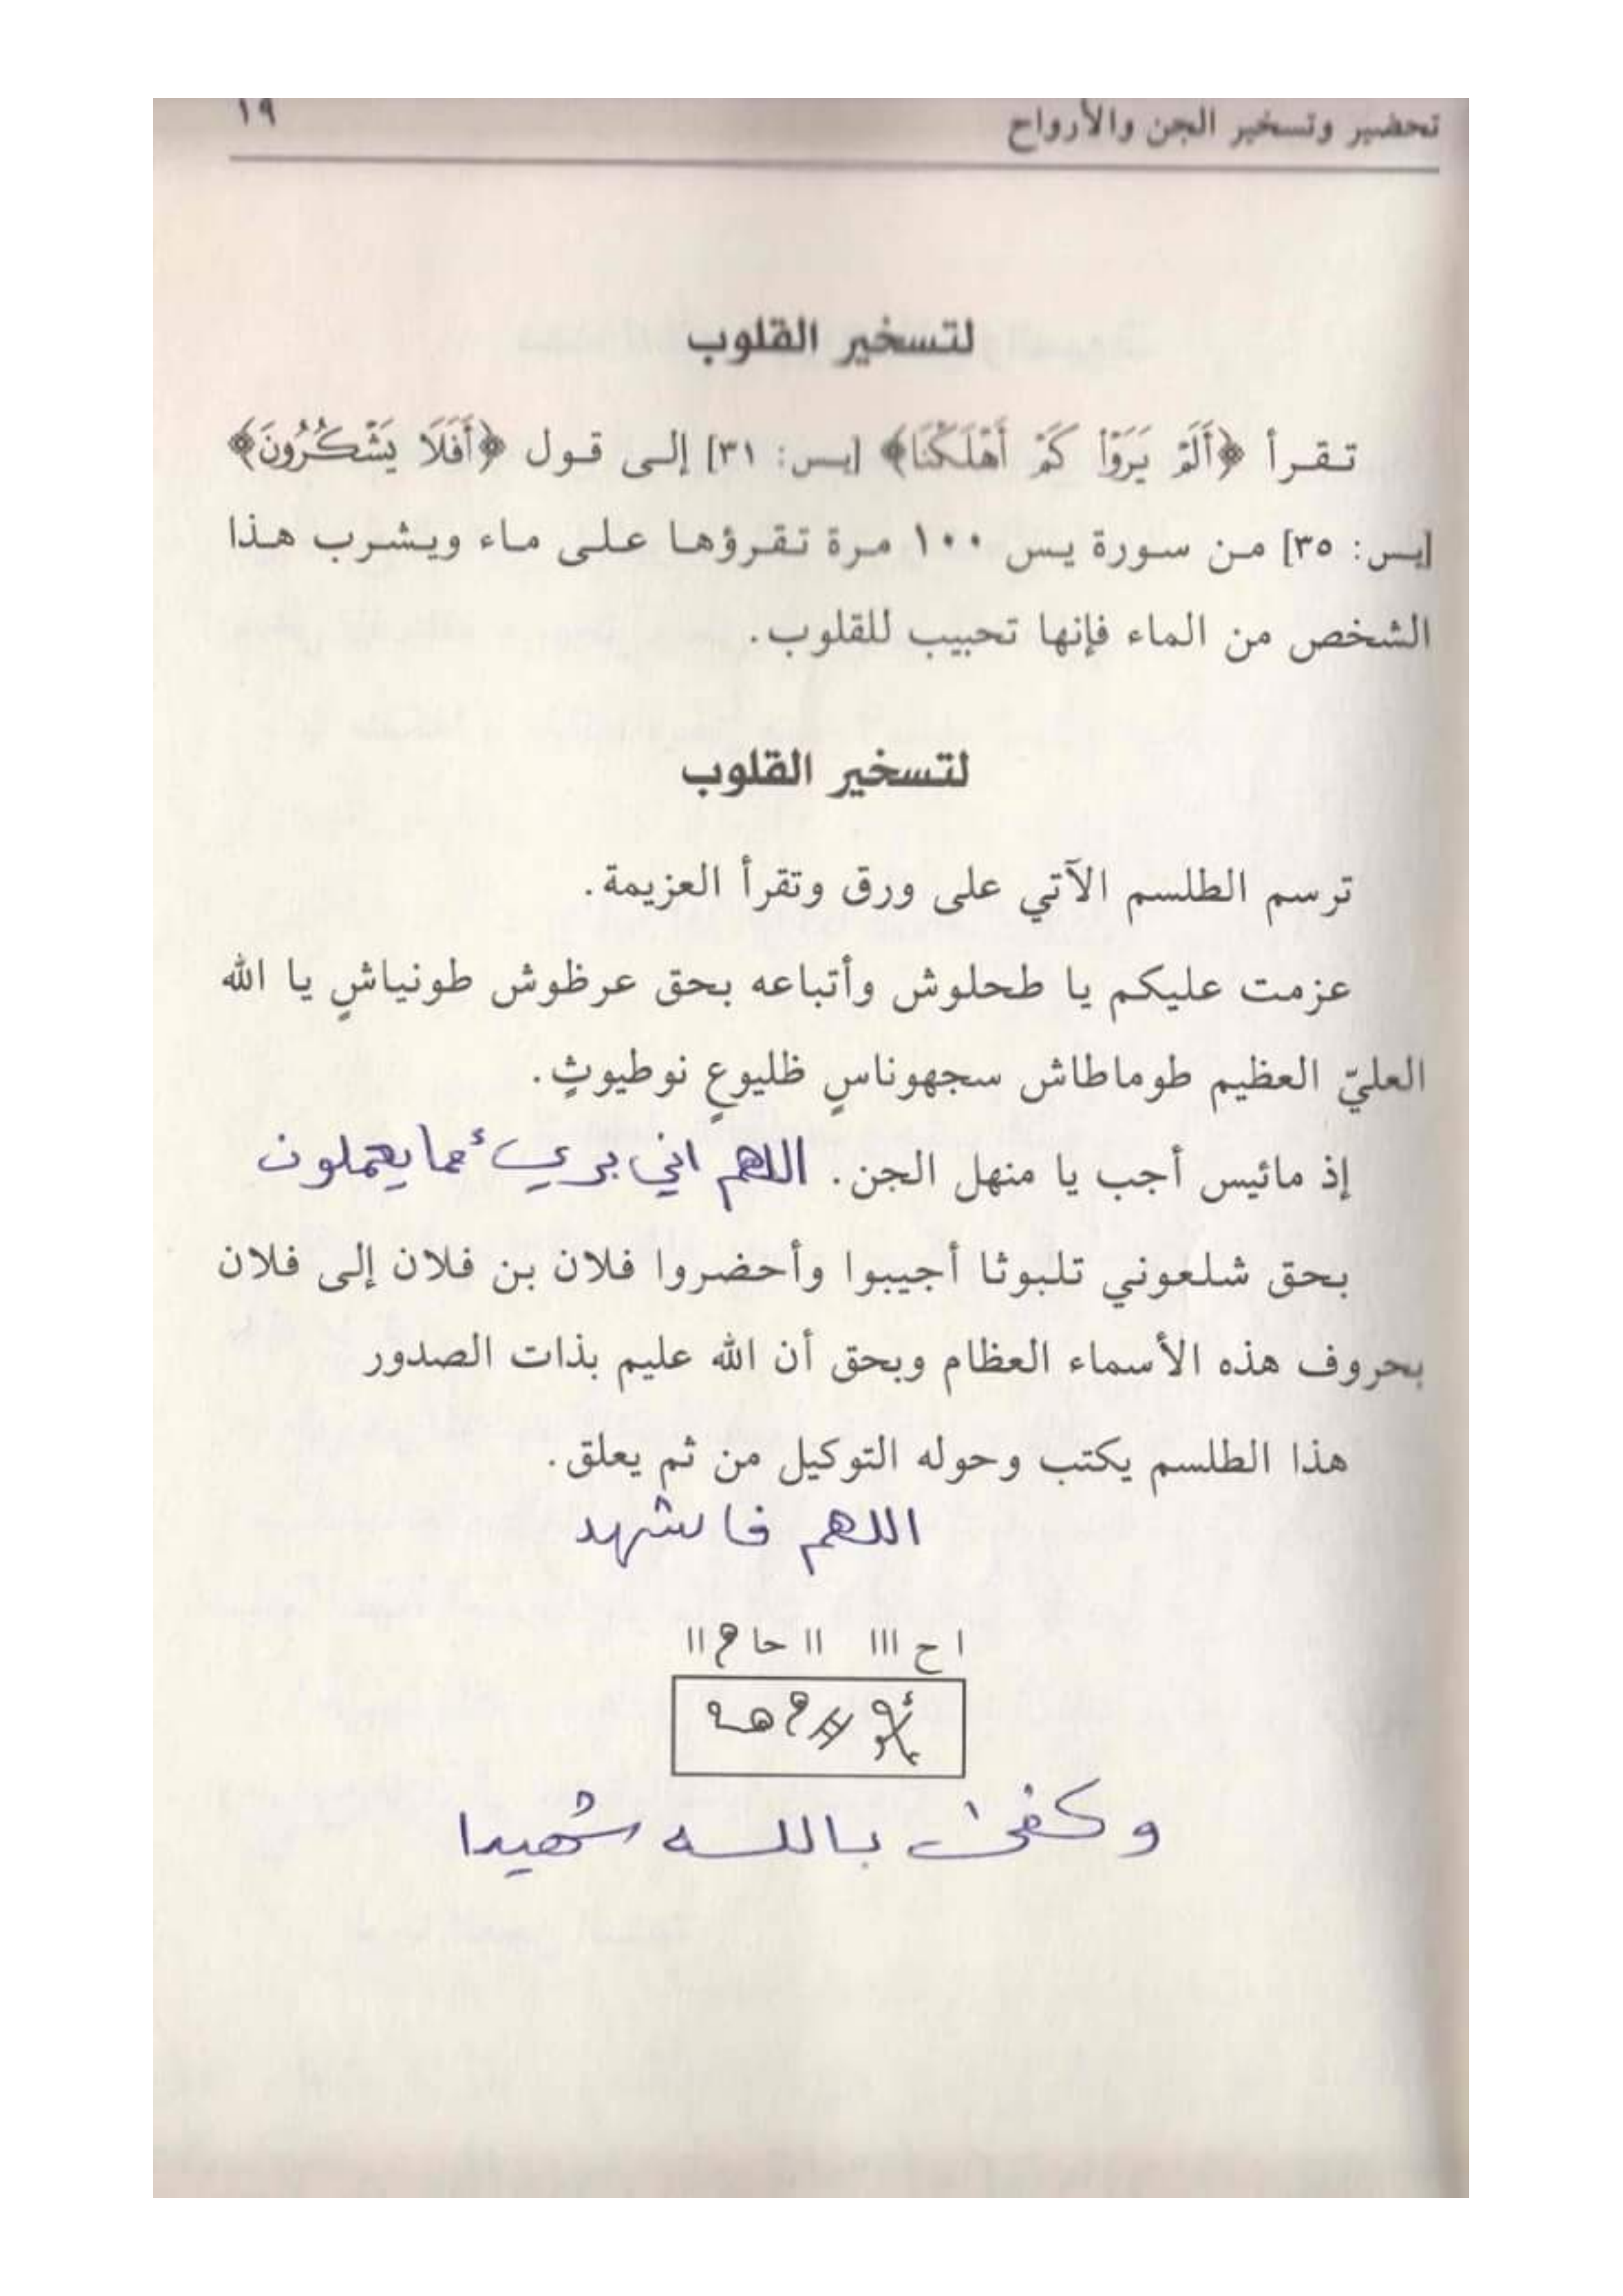 تحضير وتسخير الجن والأرواح ١٩
لتسخير القلوب
تقرأ ﴿أَلَمْ يَرَوْا كَمْ أَهْلَكْنَا﴾ [يس: ٣١] إلى قول ﴿أَفَلَا يَشْكُرُونَ﴾
[يس: ٣٥] من سورة يس ١٠٠ مرة تقرؤها على ماء ويشرب هذا
الشخص من الماء فإنها تحبيب للقلوب.
لتسخير القلوب
ترسم الطلسم الآتي على ورق وتقرأ العزيمة.
عزمت عليكم يا طحلوش وأتباعه بحق عرظوش طونياشٍ يا الله
العليّ العظيم طوماطاش سجهوناسٍ ظليوعٍ نوطيوثٍ.
إذ مائيس أجب يا منهل الجن. اللهم اني بريء مما يعملون
بحق شلعوني تلبوثا أجيبوا وأحضروا فلان بن فلان إلى فلان
بحروف هذه الأسماء العظام وبحق أن الله عليم بذات الصدور
هذا الطلسم يكتب وحوله التوكيل من ثم يعلق.
اللهم فاشهد
ا ح ااا اا حا م اا
وكفى بالله شهيدا